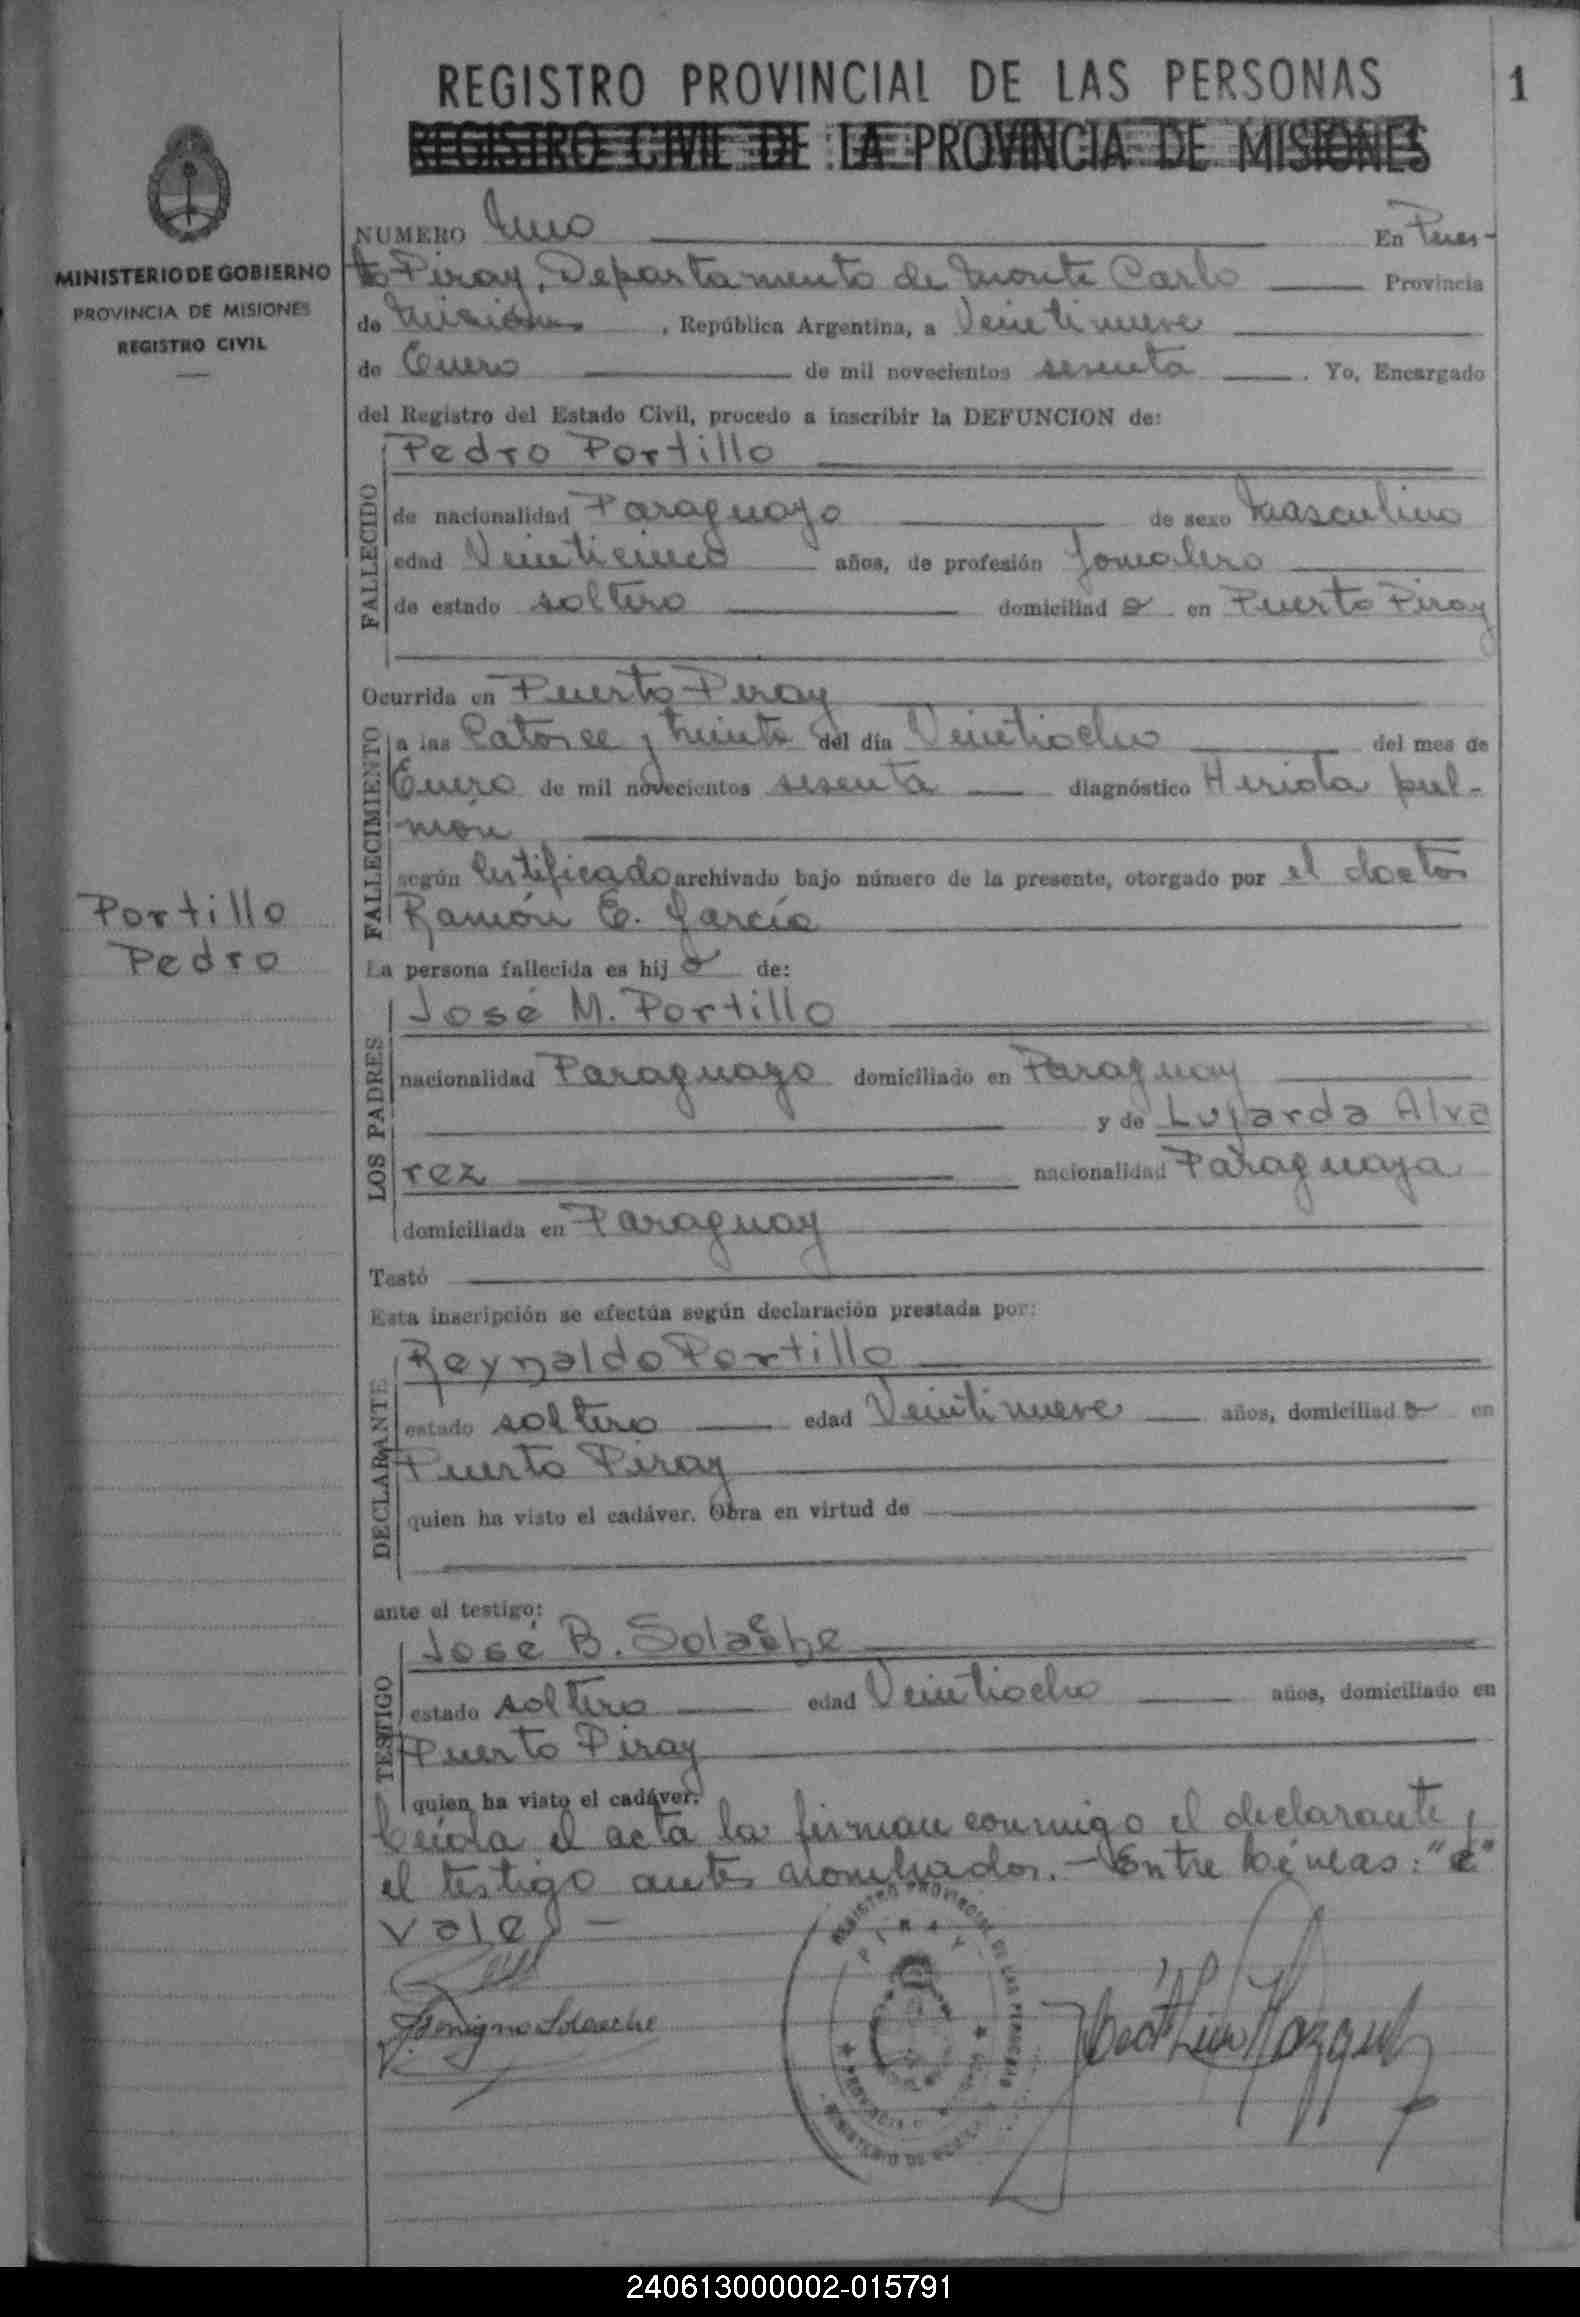 REGISTRO PROVINCIAL DE LAS PERSONAS
1
REGISTRO CIVIL DE LA PROVINCIA DE MISIONES
MINISTERIO DE GOBIERNO
PROVINCIA DE MISIONES
REGISTRO CIVIL
NUMERO Uno En Puer-
to Piray, Departamento de Monte Carlo Provincia
de Misiones, República Argentina, a Veintinueve
de Enero de mil novecientos sesenta. Yo, Encargado
del Registro del Estado Civil, procedo a inscribir la DEFUNCION de:
FALLECIDO
Pedro Portillo
de nacionalidad Paraguayo de sexo Masculino
edad Veinticinco años, de profesión Jornalero
de estado soltero domiciliad o en Puerto Piray
Ocurrida en Puerto Piray
FALLECIMIENTO
a las Catorce y treinta del día Veintiocho del mes de
Enero de mil novecientos sesenta diagnóstico Herida pul-
món
según Certificado archivado bajo número de la presente, otorgado por el doctor
Ramón E. García
Portillo
Pedro
La persona fallecida es hij o de:
LOS PADRES
José M. Portillo
nacionalidad Paraguayo domiciliado en Paraguay
y de Lujarda Alva
rez nacionalidad Paraguaya
domiciliada en Paraguay
Testó
Esta inscripción se efectúa según declaración prestada por:
DECLARANTE
Reynaldo Portillo
estado soltero edad Veintinueve años, domiciliad o en
Puerto Piray
quien ha visto el cadáver. Obra en virtud de
ante el testigo:
TESTIGO
José B. Solaeche
estado soltero edad Veintiocho años, domiciliado en
Puerto Piray
quien ha visto el cadáver.
Leída el acta la firman conmigo el declarante y
el testigo antes nombrados.- Entre líneas: "e"
Vale.-
REGISTRO PROVINCIAL DE LAS PERSONAS
PIRAY
MINISTERIO DE
J Benigno Solaeche
240613000002-015791